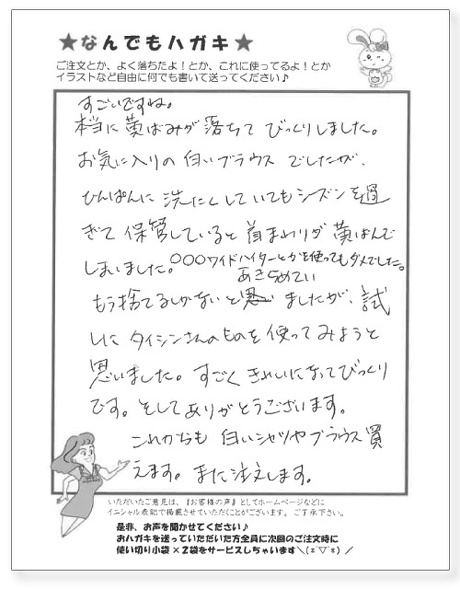 ★なんでもハガキ★
ご注文とか、よく落ちたよ！とか、これに使ってるよ！とか
イラストなど自由に何でも書いて送ってください♪
すごいですね。
本当に黄ばみが落ちて びっくりしました。
お気に入りの白いブラウス でしたが、
ひんぱんに 洗たくしていてもシーズンを過
ぎて 保管していると 首まわりが 黄ばんで
しまいました。○○○ワイドハイターとかを使ってもダメでした。
あきらめてい
もう捨てるしかないと ましたが、試
しに タイシンさんのものを使ってみようと
思いました。すごく きれいになってびっくり
です。そしてありがとうございます。
これからも 白いシャツやブラウス買
えます。また注文します。
いただいたご意見は、『お客様の声』としてホームページなどに
イニシャル表記で掲載させていただくことがございます。ご了承下さい。
是非、お声を聞かせてください♪
おハガキを送っていただいた方全員に次回のご注文時に
使い切り小袋×２袋をサービスしちゃいます＼(ε▽ε)／